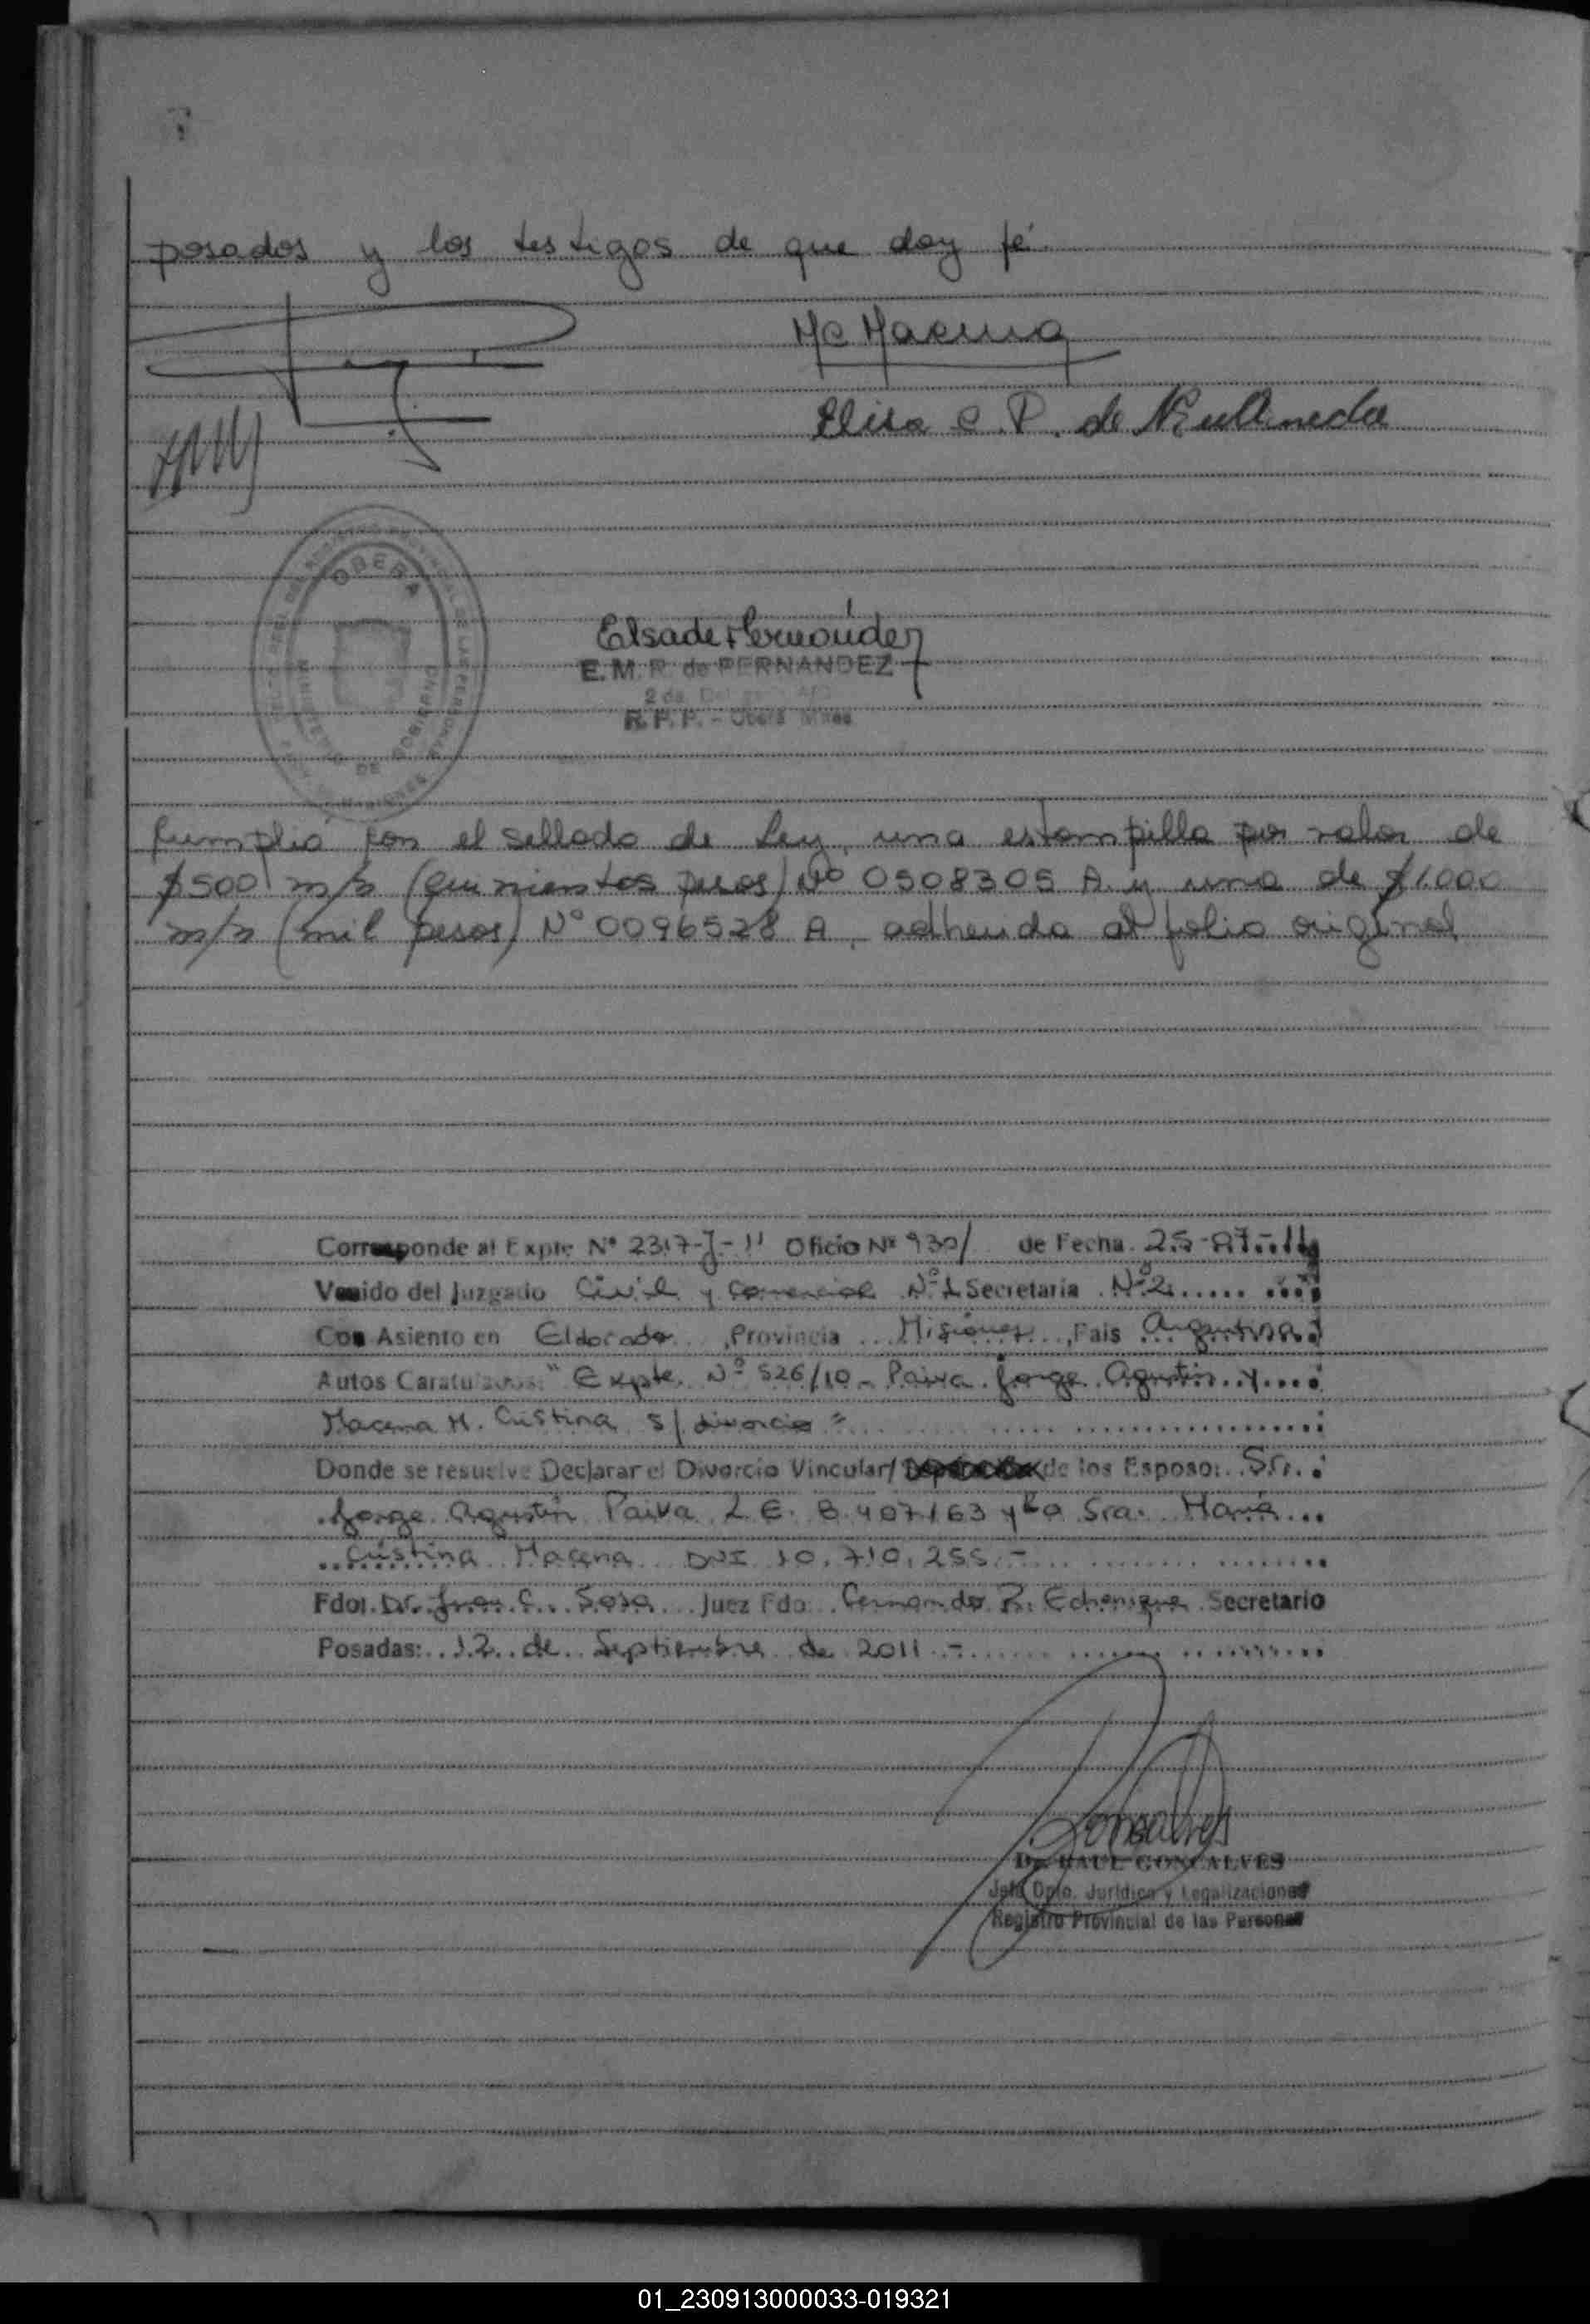 posados y los testigos de que doy fé.
Mc Macena
Elisa C. P. de
OBERA
MINISTERIO DE GOBIERNO
Elsa de Fernández
E. M. R. de FERNANDEZ
R. P. P. - Oberá Mnes
Cumplió con el sellado de Ley, una estampilla por valor de
$500 m/n (quinientos pesos) Nº 0508305 A y una de $1.000
m/n (mil pesos) Nº 0096528 A, adherida al folio original
Corresponde al Expte Nº 2317-J-11 Oficio Nº 930/ de Fecha 25-07-11
Venido del Juzgado Civil y Comercial Nº 1 Secretaría Nº 2
Con Asiento en Eldorado, Provincia Misiones, País Argentina
Autos Caratulados: "Expte. Nº 526/10 - Paiva Jorge Agustín y
Macena M. Cristina s/ divorcio"
Donde se resuelve Declarar el Divorcio Vincular/ de los Esposos Sr.
Jorge Agustín Paiva L.E. 8.407.163 y la Sra. María
Cristina Macena DNI 10.710.255.-
Fdo. Dr. C. Sosa Juez Fdo. Fernando R. Echenique Secretario
Posadas: 12 de Septiembre de 2011.-
Dr. RAUL GONCALVES
Jefe Dpto. Jurídico y Legalizaciones
Registro Provincial de las Personas
01_230913000033-019321